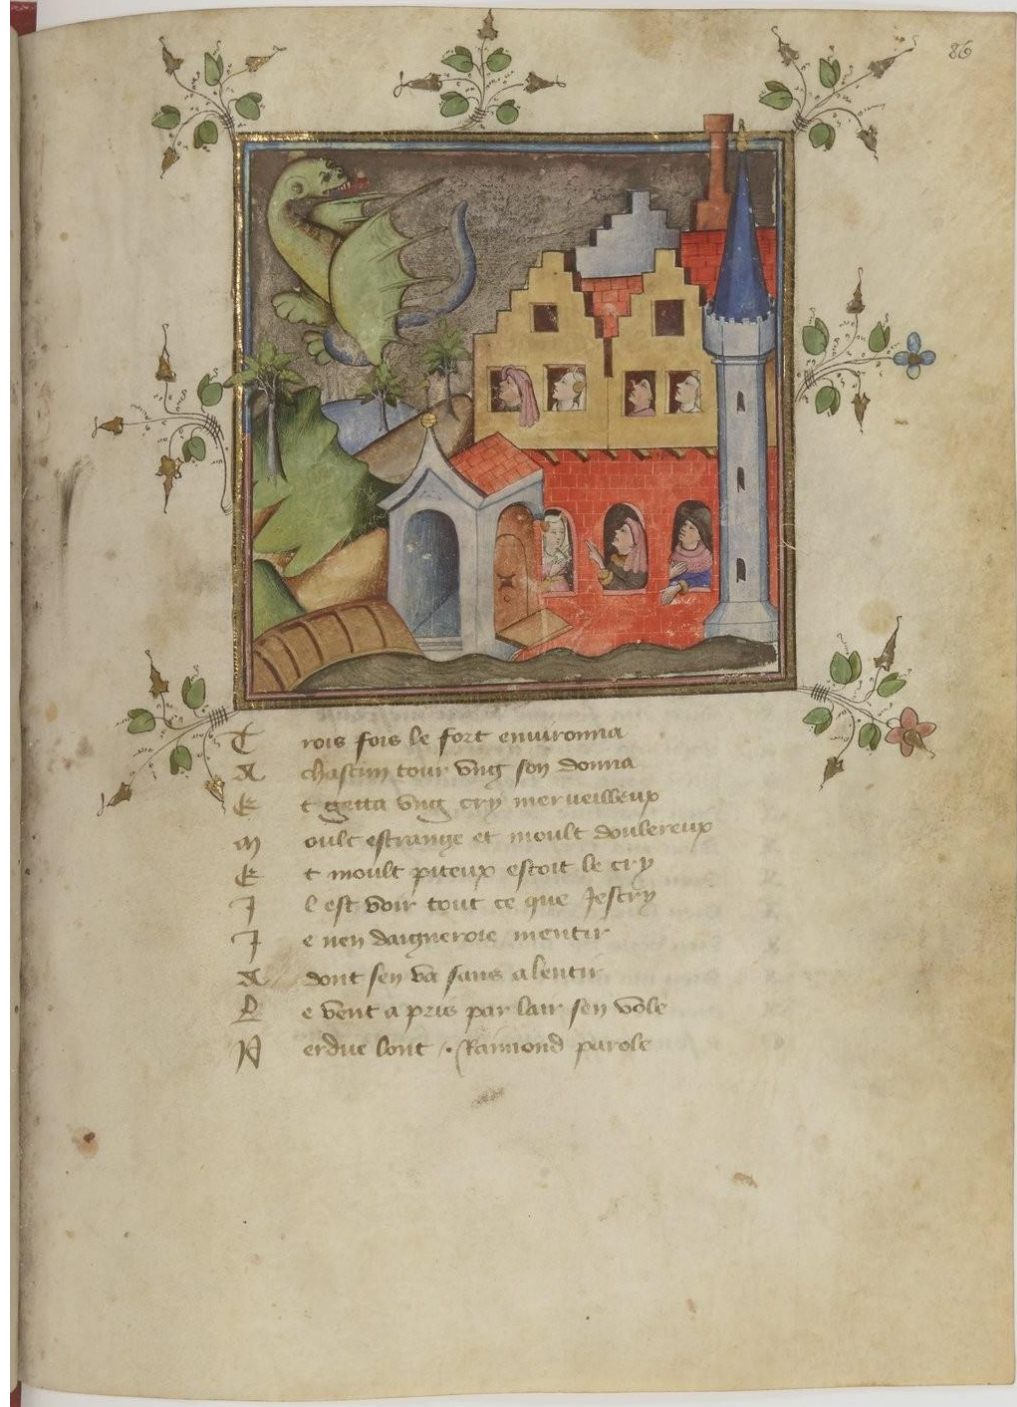 86
Trois fois le fort enuironna
A chascun tour vng son donna
Et getta vng cry merueilleux
Moult estrange et moult doulereux
Et moult piteux estoit le cry
Il est voir tout ce que Jescry
Je nen daigneroie mentir
Adont sen va sans alentir
Le vent a pris par lair sen vole
Perdue lont . Raimond parole